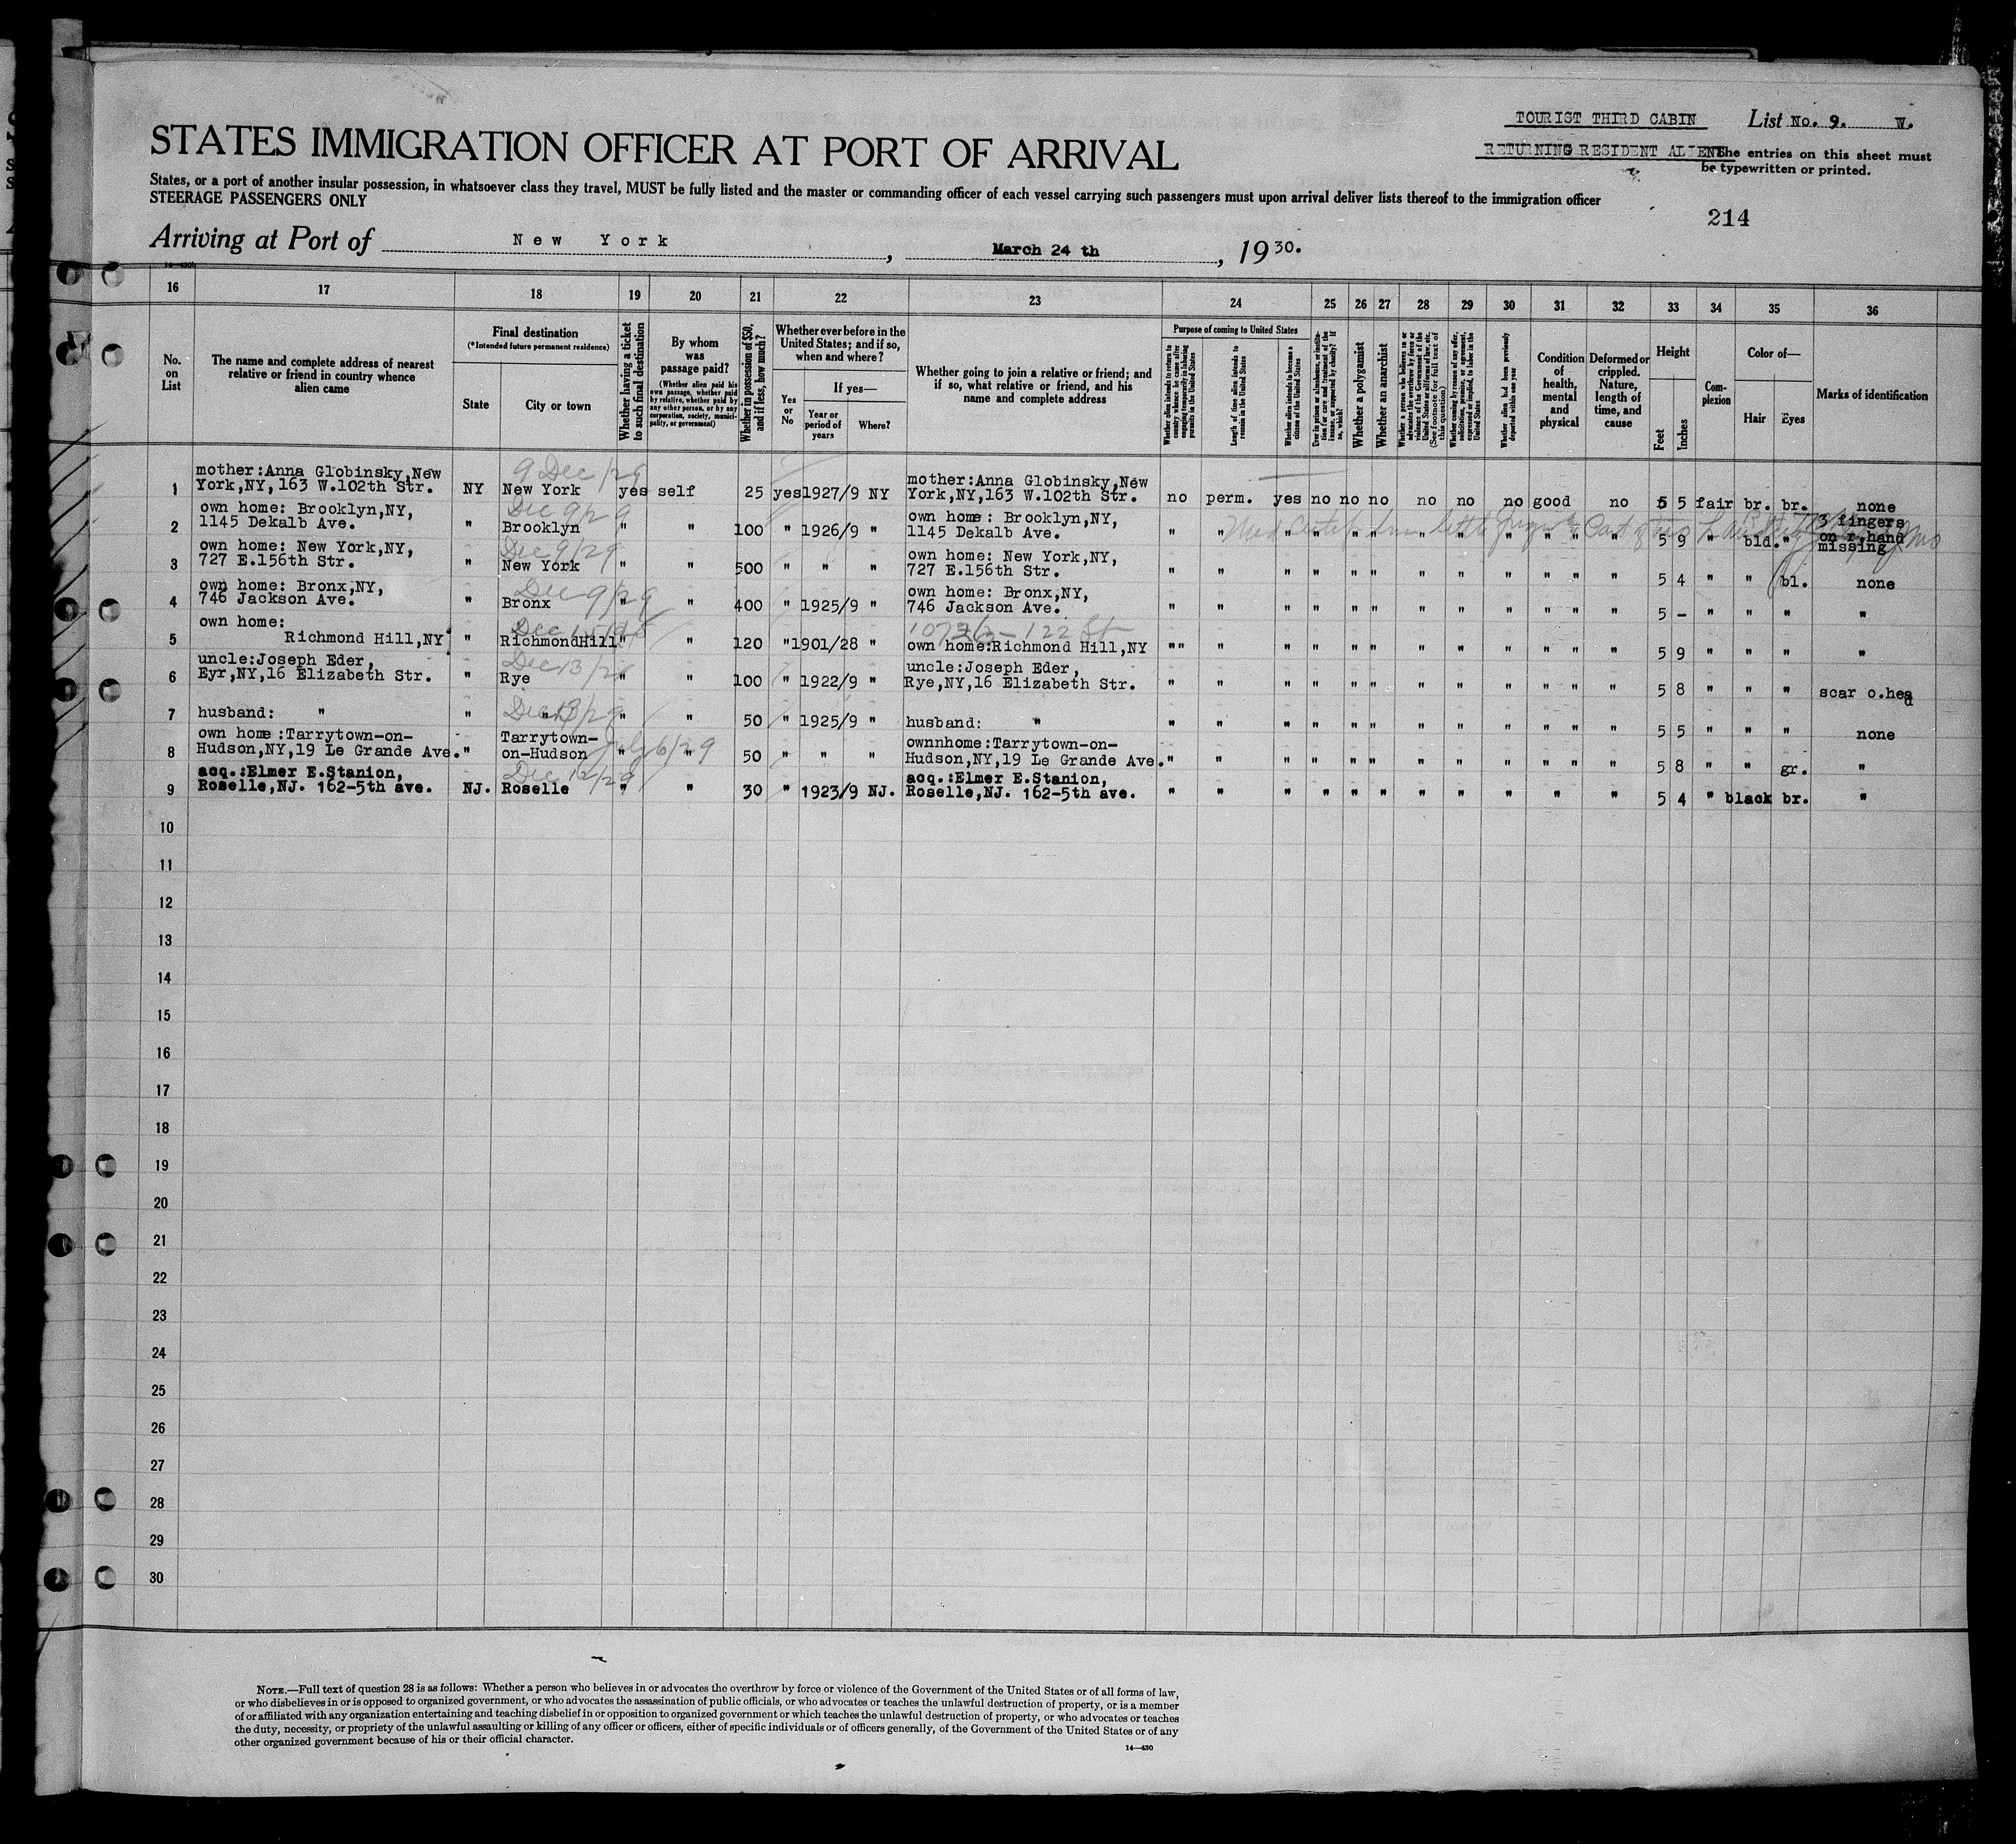 TOURIST THIRD CABIN
List No. 9. W.
STATES IMMIGRATION OFFICER AT PORT OF ARRIVAL
RETURNING RESIDENT ALIENS
The entries on this sheet must
be typewritten or printed.
States, or a port of another insular possession, in whatsoever class they travel, MUST be fully listed and the master or commanding officer of each vessel carrying such passengers must upon arrival deliver lists thereof to the immigration officer
STEERAGE PASSENGERS ONLY
214
Arriving at Port of New York, March 24 th, 1930.
16 17 18 19 20 21 22 23 24 25 26 27 28 29 30 31 32 33 34 35 36
No. on List
The name and complete address of nearest relative or friend in country whence alien came
Final destination
(*Intended future permanent residence)
State
City or town
Whether having a ticket to such final destination
By whom was passage paid?
(Whether alien paid his own passage, whether paid by relative, whether paid by any other person, or by any corporation, society, municipality, or government)
Whether in possession of $50, and if less, how much?
Whether ever before in the United States; and if so, when and where?
Yes or No
If yes—
Year or period of years
Where?
Whether going to join a relative or friend; and if so, what relative or friend, and his name and complete address
Purpose of coming to United States
Whether alien intends to return to country whence he came after engaging temporarily in laboring pursuits in the United States
Length of time alien intends to remain in the United States
Whether alien intends to become a citizen of the United States
Ever in prison or almshouse, or institution for care and treatment of the insane, or supported by charity? If so, which?
Whether a polygamist
Whether an anarchist
Whether a person who believes in or advocates the overthrow by force or violence of the Government of the United States or all forms of law, etc. (See footnote for full text of this question)
Whether coming by reason of any offer, solicitation, promise, or agreement, expressed or implied, to labor in the United States
Whether alien had been previously deported within one year
Condition of health, mental and physical
Deformed or crippled. Nature, length of time, and cause
Height
Feet
Inches
Complexion
Color of—
Hair
Eyes
Marks of identification
9 Dec/29
1 mother:Anna Globinsky,New York,NY, 163 W.102th Str. NY New York yes self 25 yes 1927/9 NY mother:Anna Globinsky,New York,NY,163 W.102th Str. no perm. yes no no no no no no good no 5 5 fair br. br. none
Dec 9/29
2 own home: Brooklyn,NY, 1145 Dekalb Ave. " Brooklyn " " 100 " 1926/9 " own home: Brooklyn,NY, 1145 Dekalb Ave. " " " " " " " " " " " " 5 9 " bld. " 3 fingers on r.hand missing
Dec 9/29
3 own home: New York,NY, 727 E.156th Str. " New York " " 500 " " " own home: New York,NY, 727 E.156th Str. " " " " " " " " " " " " 5 4 " " bl. none
Dec 9/29
4 own home: Bronx,NY, 746 Jackson Ave. " Bronx " " 400 " 1925/9 " own home: Bronx,NY, 746 Jackson Ave. " " " " " " " " " " " " 5 - " " " "
122 St
5 own home: Richmond Hill,NY " RichmondHill " " 120 " 1901/28 " own home:Richmond Hill,NY " " " " " " " " " " " " 5 9 " " " "
Dec 13/29
6 uncle:Joseph Eder, Eyr,NY,16 Elizabeth Str. " Rye " " 100 " 1922/9 " uncle:Joseph Eder, Rye,NY,16 Elizabeth Str. " " " " " " " " " " " " 5 8 " " " scar o.hea
d
Dec 13/29
7 husband: " " " " " 50 " 1925/9 " husband: " " " " " " " " " " " " " 5 5 " " " none
July 6/29
8 own home :Tarrytown-on-Hudson,NY,19 Le Grande Ave. " Tarrytown-on-Hudson " " 50 " " " ownnhome:Tarrytown-on-Hudson,NY,19 Le Grande Ave. " " " " " " " " " " " " 5 8 " " gr. "
Dec 12/29
9 acq.:Elmer E.Stanion, Roselle,NJ. 162-5th ave. NJ. Roselle " " 30 " 1923/9 NJ. acq.:Elmer E.Stanion, Roselle,NJ. 162-5th ave. " " " " " " " " " " " 5 4 " black br. "
10
11
12
13
14
15
16
17
18
19
20
21
22
23
24
25
26
27
28
29
30
NOTE.—Full text of question 28 is as follows: Whether a person who believes in or advocates the overthrow by force or violence of the Government of the United States or of all forms of law,
or who disbelieves in or is opposed to organized government, or who advocates the assassination of public officials, or who advocates or teaches the unlawful destruction of property, or is a member
of or affiliated with any organization entertaining and teaching disbelief in or opposition to organized government or which teaches the unlawful destruction of property, or who advocates or teaches
the duty, necessity, or propriety of the unlawful assaulting or killing of any officer or officers, either of specific individuals or of officers generally, of the Government of the United States or of any
other organized government because of his or their official character.
14—430